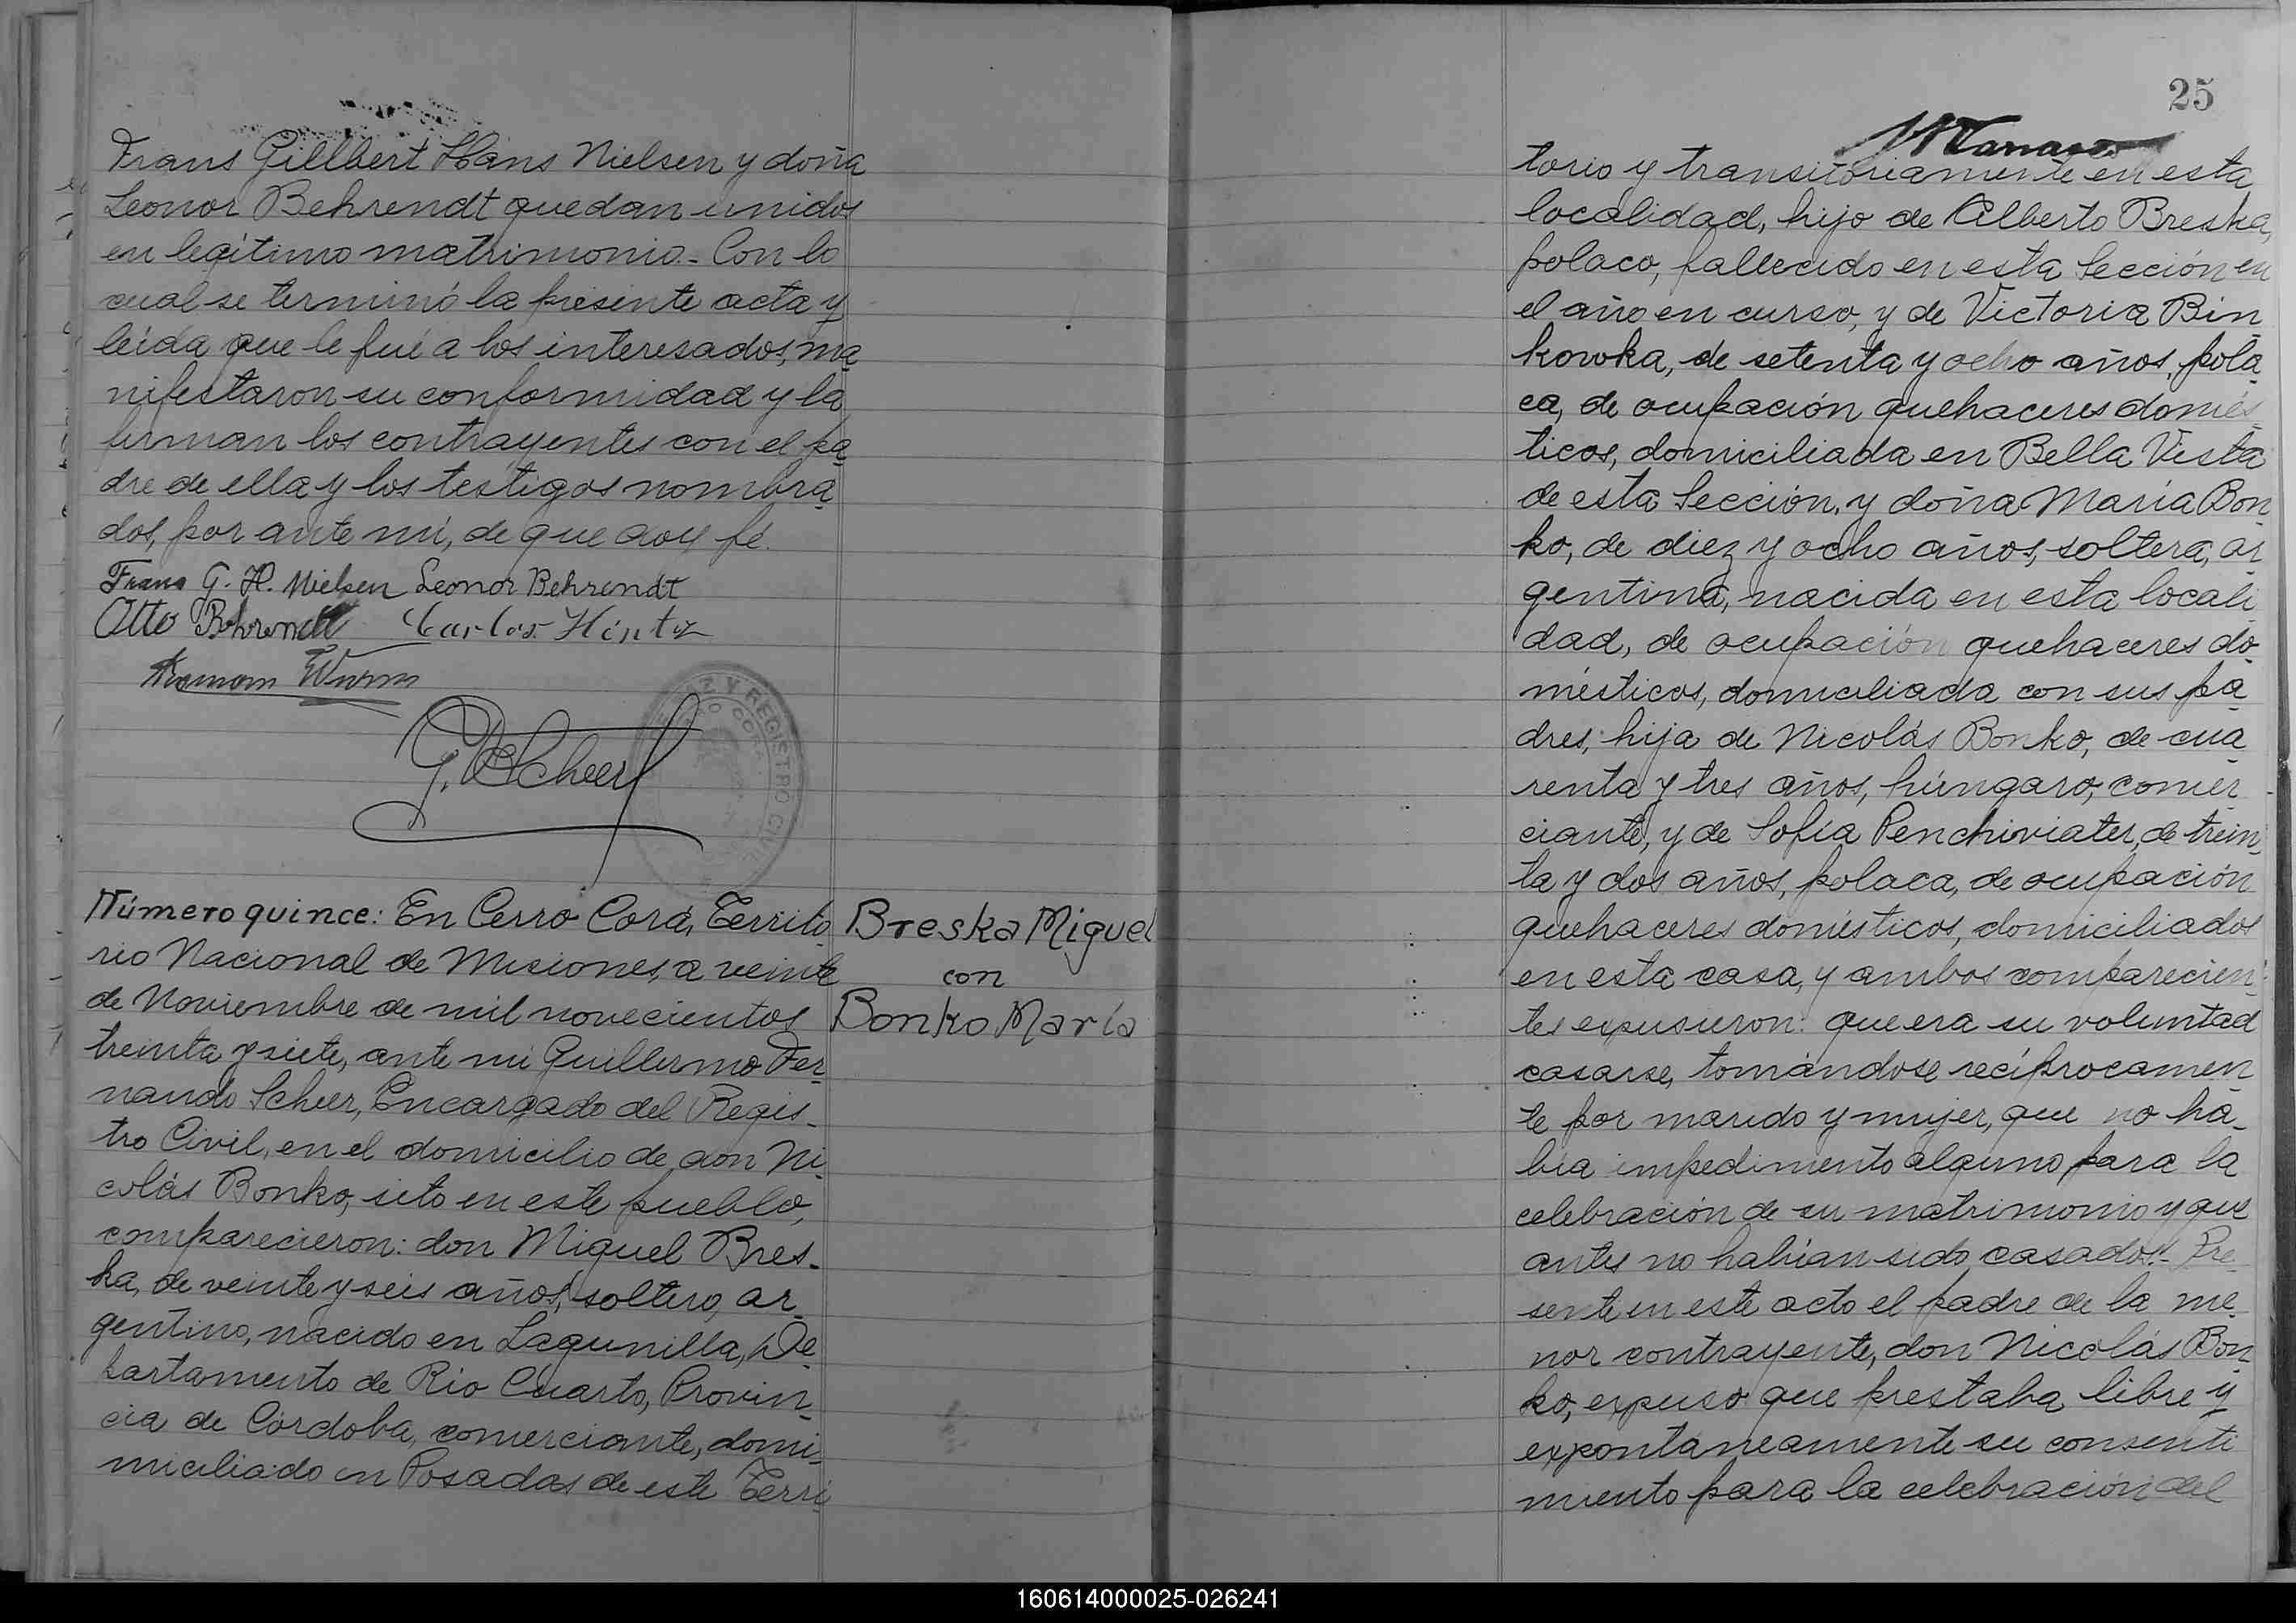 Frans Gillbert Hans Nielsen y doña
Leonor Behrendt quedan unidos
en legítimo matrimonio.- Con lo
cual se terminó la presente acta y
leída que le fué a los interesados, ma
nifestaron su conformidad y la
firman los contrayentes con el pa
dre de ella y los testigos nombra
dos, por ante mí, de que doy fé.
Frans G. H. Nielsen Leonor Behrendt
Otto Behrendt Carlos Hintz
Wurm
G. F. Scheer
Z Y REGISTRO CIVIL
Número quince: En Cerro Corá, Territo
rio Nacional de Misiones, a veinte
de Noviembre de mil novecientos
treinta y siete, ante mi Guillermo Fer
nando Scheer, Encargado del Regis-
tro Civil, en el domicilio de don Ni
colás Bonko, sito en este pueblo,
comparecieron: don Miguel Bres-
ka, de veinte y seis años, soltero, ar
gentino, nacido en Lagunilla, De
partamento de Rio Cuarto, Provin
cia de Córdoba, comerciante, domi-
miciliado en Posadas de este Terri
Breska Miguel
con
Bonko María
25
torio y transitoriamente en esta
localidad, hijo de Alberto Breska,
polaco, fallecido en esta Sección en
el año en curso, y de Victoria Bin
kowka, de setenta y ocho años, pola
ca, de ocupación quehaceres domés
ticos, domiciliada en Bella Vista
de esta Sección, y doña María Bon
ko, de diez y ocho años, soltera, ar
gentina, nacida en esta locali
dad, de ocupación quehaceres do
mésticos, domiciliada con sus pa
dres, hija de Nicolás Bonko, de cua
renta y tres años, húngaro, comer
ciante, y de Sofía Penchiviater, de trein
ta y dos años, polaca, de ocupación
quehaceres domésticos, domiciliados
en esta casa, y ambos comparecien
tes expusieron: que era su voluntad
casarse, tomándose recíprocamen
te por marido y mujer, que no ha-
bía impedimento alguno para la
celebración de su matrimonio y que
antes no habían sido casados.- Pre
sente en este acto el padre de la me
nor contrayente, don Nicolás Bon
ko, expuso que prestaba libre y
expontaneamente su consenti
miento para la celebración del
160614000025-026241